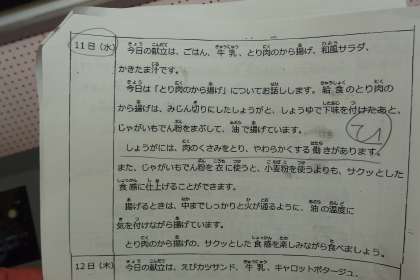 11日(水)
今日の献立は、ごはん、牛乳、とり肉のから揚げ、和風サラダ、
かきたま汁です。
今日は「とり肉のから揚げ」についてお話しします。給食のとり肉の
から揚げは、みじん切りにしたしょうがと、しょうゆで下味を付けたあと、
じゃがいもでん粉をまぶして、油で揚げています。
しょうがには、肉のくさみをとり、やわらかくする働きがあります。
また、じゃがいもでん粉を衣に使うと、小麦粉を使うよりも、サクッとした
食感に仕上げることができます。
揚げるときは、中までしっかりと火が通るように、油の温度に
気を付けながら揚げています。
とり肉のから揚げの、サクッとした食感を楽しみながら食べましょう。
12日(木)
今日の献立は、えびカツサンド、牛乳、キャロットポタージュ、